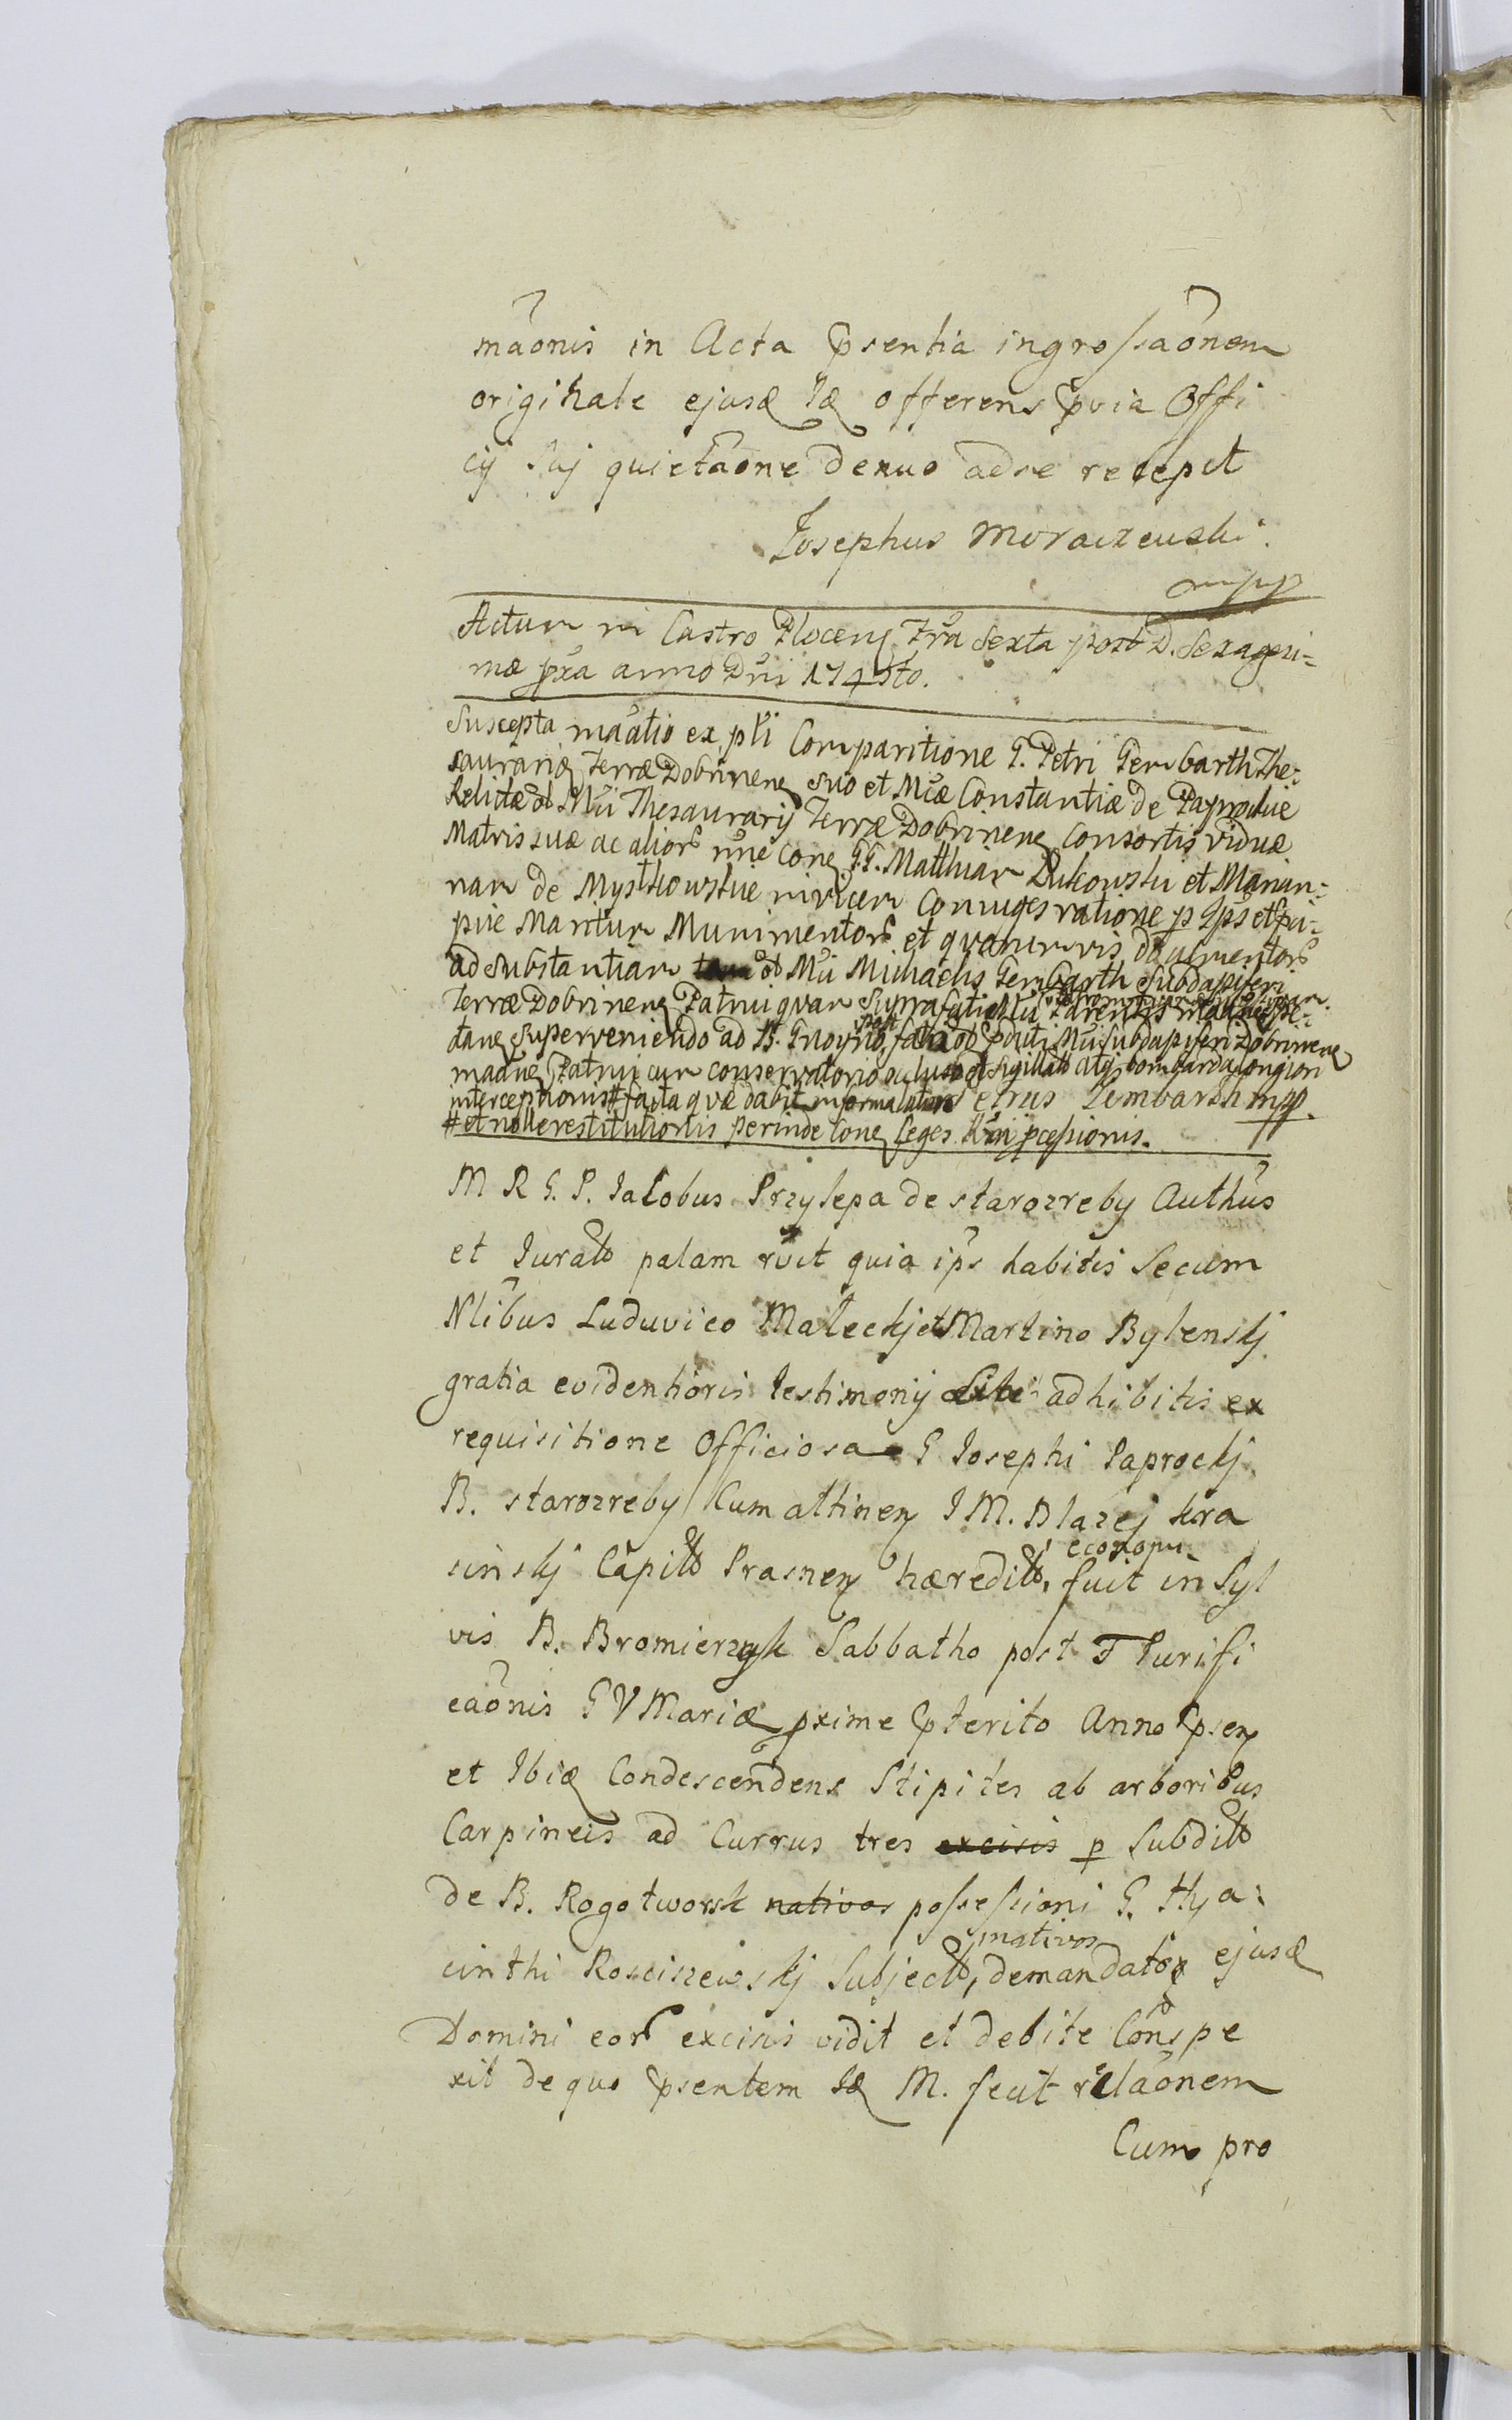 mãonis in Acta Psentia ingrossaõnem
originale ejusd Id offerens Pvia Offi
cij suj quietaõne denuo ad se recepit
Josephus Moraczewski
mpp
Actum in Castro Plocen Fra Sexta post D. Sexagesi=
mæ pxa anno Dni 174sto.
Suscepta ma͠atio ex pti Comparitione G. Petri Gembarth The=
saurarid Terræ Dobrinen suo et Mcæ Constantiæ de Paprockie
Relictæ ol Mci Thesaurarij Terræ Dobrinen Consortis viduæ
Matris suæ ac alior nne con G.G. Matthiam Rukowski et Marian=
nam de Mysthowskie invicem Conjuges ratione p Ips et
pue Maritum Munimentor et quarumvis documentor
ad substantiam ol Mci Michaelis Gembarth Subdapiferi
Terræ Dobrinen Patrui quam suprafati Mci Parentis
superveniendo ad B. Gnoyno, post fata ol Pdicti Mci Subdapiferi Dobrinen
Patrui cum conservatorio ocluso et sigillato atq bombarda longiori
interceptionis # facta quæ dabit informatur Petrus Gembarth mpp.
# et nolle restitutionis perinde Con Leges Rni pcessionis.
M R G. P. Jacobus Przylepa de starozreby Authus
et Jurato palam rvit quia ips habitis Secum
Nlibus Luduvico Maleckj et Martino Bylenskj
gratia evidentioris testimonij Sibi adhibitis ex
requisitione Officiosa G Josephi Paprockj
B. starozreby Cum attinen J M. Blazej kra
sinskj Capito Prasnen hæredito, economi fuit in Syl
vis B. Bromierzyk Sabbatho post F Purifi
caõnis G V Mariæ pxime Pterito Anno Psen
et Ibid Condescendens Stipites ab arboribus
Carpineis ad Currus tres excisis p Subdito
de B. Rogotworsk nativos possessioni G. Hya=
cinthi Rosciszewskj Subjecto, nativos demandato ejusd
Domini eor excisis vidit et debite Conspe
xit de quo Psentem Id M. fecit relaõnem
Cum pro